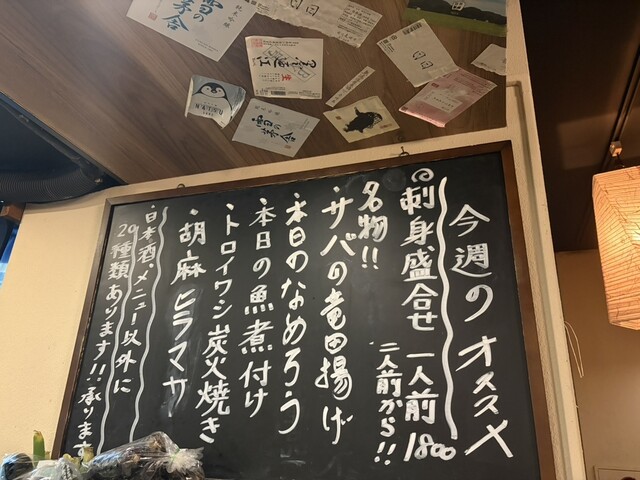 今週のオススメ
◎刺身盛合せ 一人前 1800
二人前から!!
名物!!
サバの竜田揚げ
本日のなめろう
・本日の魚煮付け
・トロイワシ炭火焼き
・胡麻ヒラマサ
・日本酒、メニュー以外に
20種類あります!! 承ります
雪の茅舎
雪の茅舎